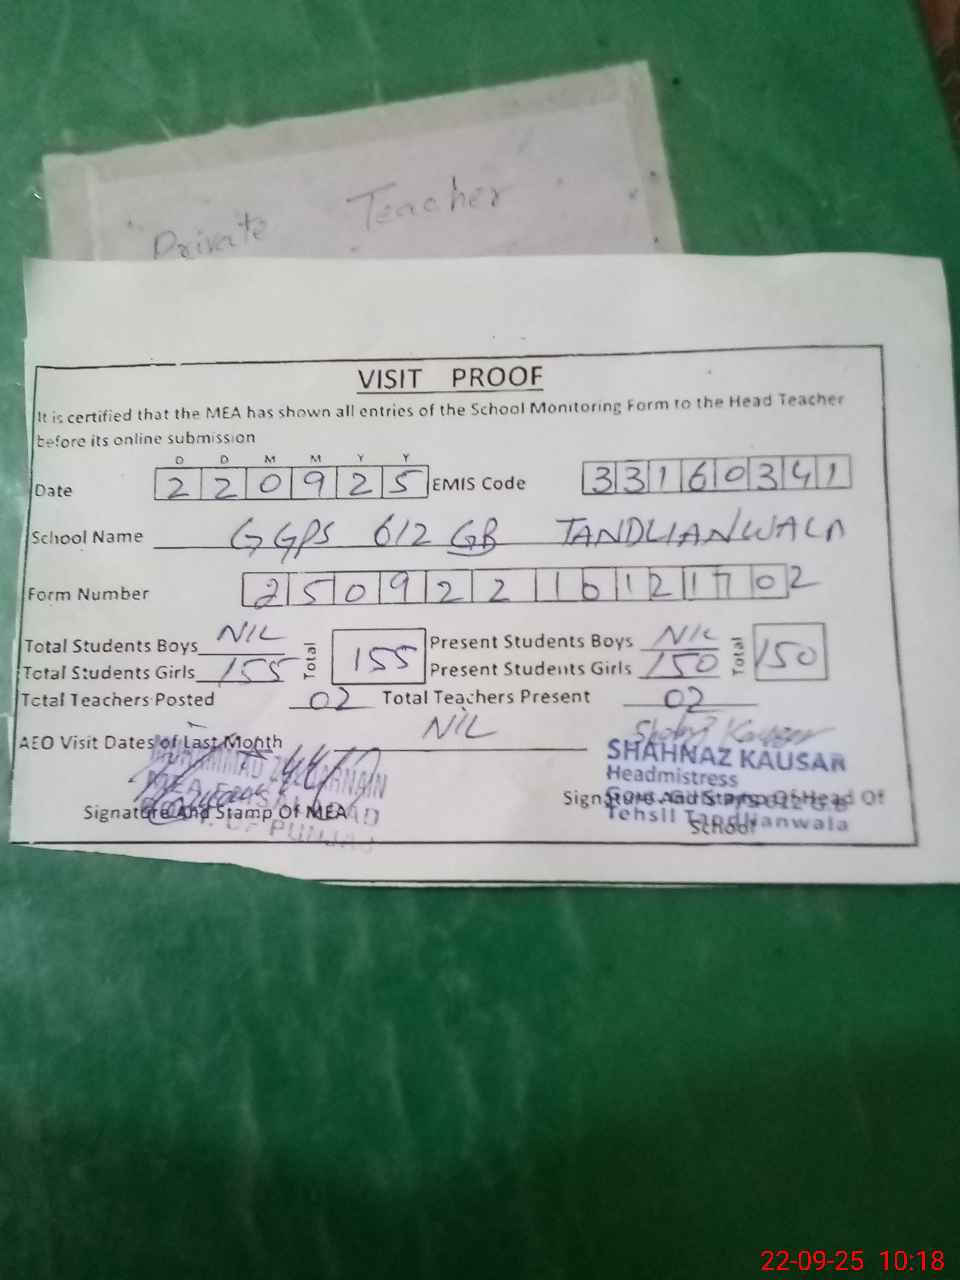 Private Teacher
VISIT PROOF
It is certified that the MEA has shown all entries of the School Monitoring Form to the Head Teacher
before its online submission
D D M M Y Y
Date 2 2 0 9 2 5 EMIS Code 3 3 1 6 0 3 4 1
School Name GGPS 612 GB TANDLIANWALA
Form Number 2 5 0 9 2 2 1 0 1 2 1 7 0 2
Total Students Boys NIL Total 155 Present Students Boys NIL Total 150
Total Students Girls 155 Present Students Girls 150
Total Teachers Posted 02 Total Teachers Present 02
AEO Visit Dates of Last Month NIL
MUHAMMAD ZULQARNAIN
MEA
Signature And Stamp Of MEA
SHAHNAZ KAUSAR
Headmistress
Signature And Stamp Of Head Of
School
Tehsil Tandlianwala
22-09-25 10:18